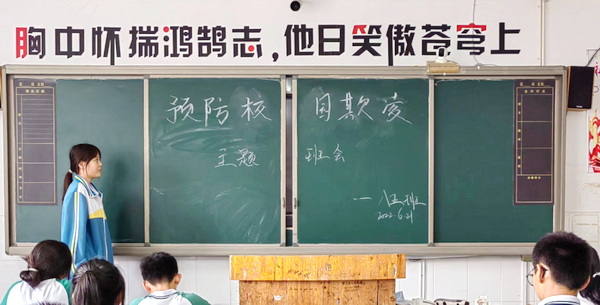 胸中怀揣鸿鹄志，他日笑傲苍穹上
预防校园欺凌
主题班会
—八五班
2022.6.21